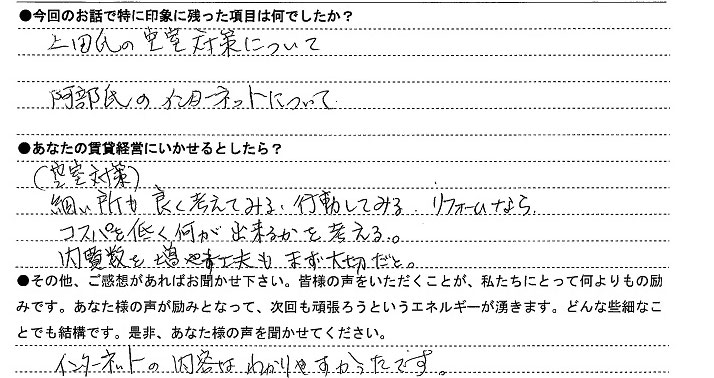 ●今回のお話で特に印象に残った項目は何でしたか？
上田氏の空室対策について
阿部氏のインターネットについて
●あなたの賃貸経営にいかせるとしたら？
(空室対策)
細い所も良く考えてみる、行動してみる。リフォームなら、
コスパを低く何が出来るかを考える。
内覧数を増やす工夫もまず大切だと。
●その他、ご感想があればお聞かせ下さい。皆様の声をいただくことが、私たちにとって何よりもの励
みです。あなた様の声が励みとなって、次回も頑張ろうというエネルギーが湧きます。どんな些細なこ
とでも結構です。是非、あなた様の声を聞かせてください。
インターネットの内容はわかりやすかったです。